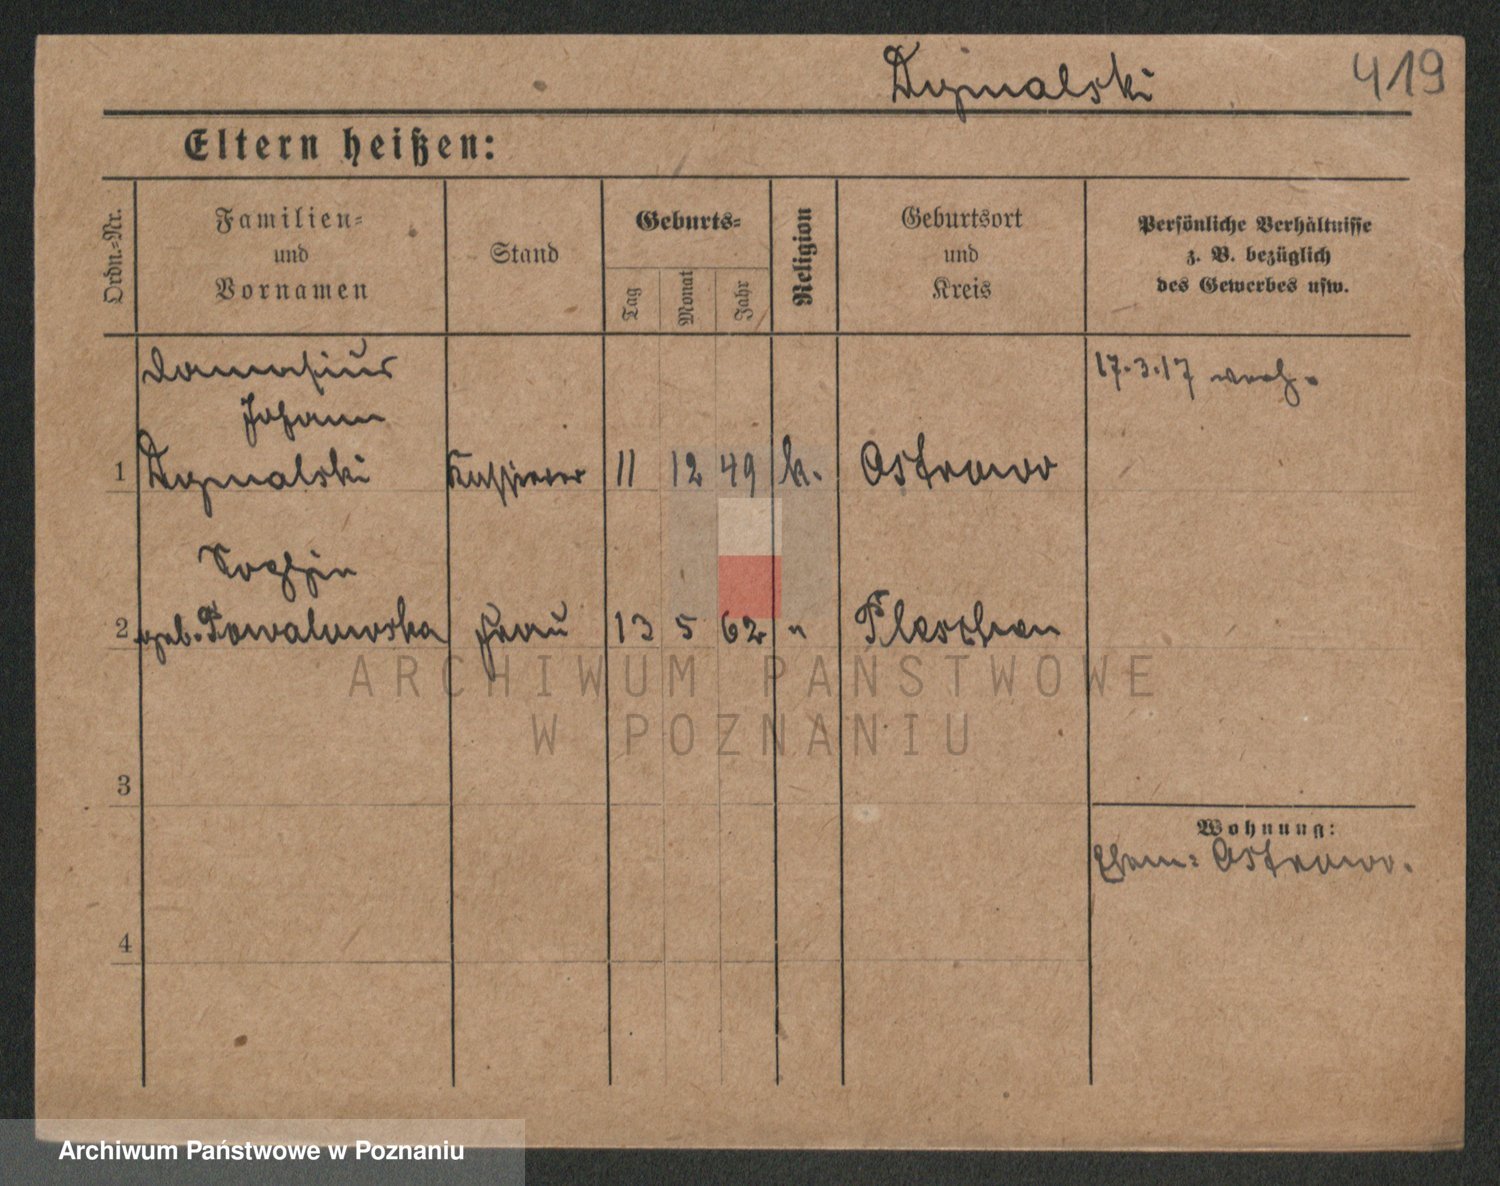 Dymalski 419
Eltern heißen:
Ordn.-Nr.
Familien-
und
Vornamen
Stand
Geburts-
Tag
Monat
Jahr
Religion
Geburtsort
und
Kreis
Persönliche Verhältnisse
z. B. bezüglich
des Gewerbes usw.
Damasius
Johann
1 Dymalski Kassierer 11 12 49 k. Ostrowo
17.3.17
Sophie
2 geb. Powalowska Frau 13 5 62 " Pleschen
3
Wohnung:
Ostrowo.
4
ARCHIWUM PAŃSTWOWE
W POZNANIU
Archiwum Państwowe w Poznaniu